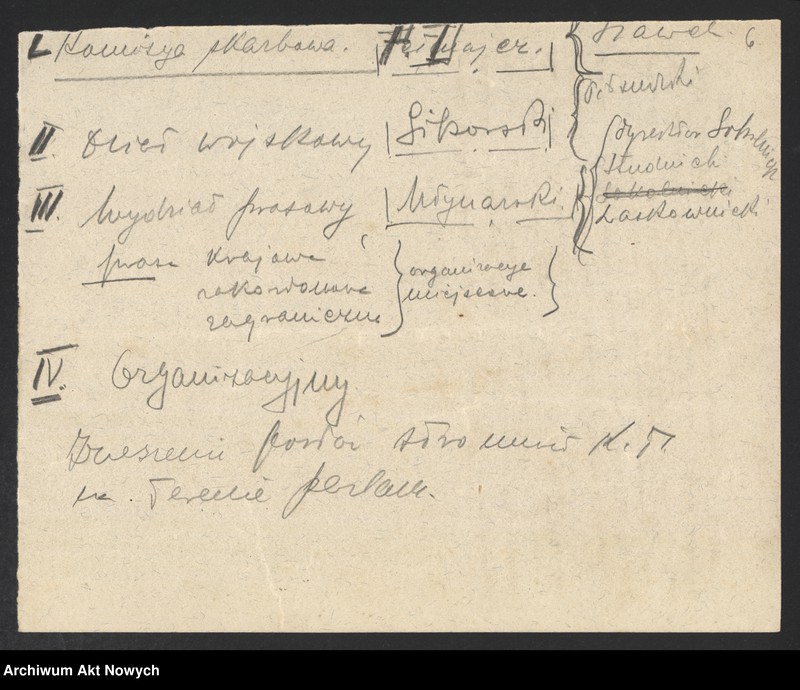 I. Komisya skarbowa. Tetmajer. Szawel 6
Piłsudski
II. Dział wojskowy Sikorski
dyrektor Sokolnicki
Studnicki
III. Wydział prasowy Młynarski. Sokolnicki
Laskownicki
prasa krajowa
zakordonowa
zagraniczna
organizacye
miejscowe.
IV. Organizacyjny
posłów stronnictw K. T.
na terenie parlam.
Archiwum Akt Nowych